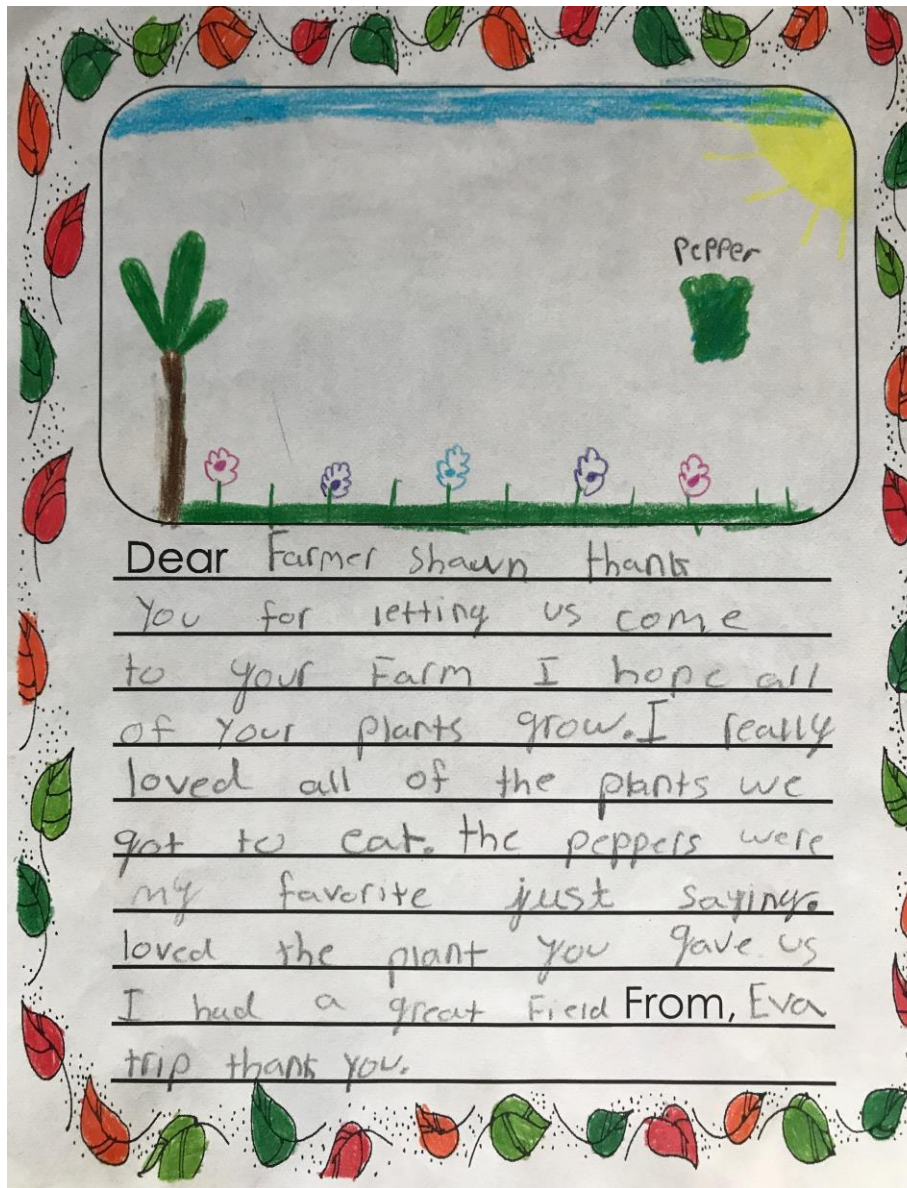 pepper
Dear Farmer Shawn thank
you for letting us come
to your Farm I hope all
of your plants grow. I really
loved all of the plants we
got to eat. the peppers were
my favorite just saying.
loved the plant you gave us
I had a great Field From, Eva
trip thank you.